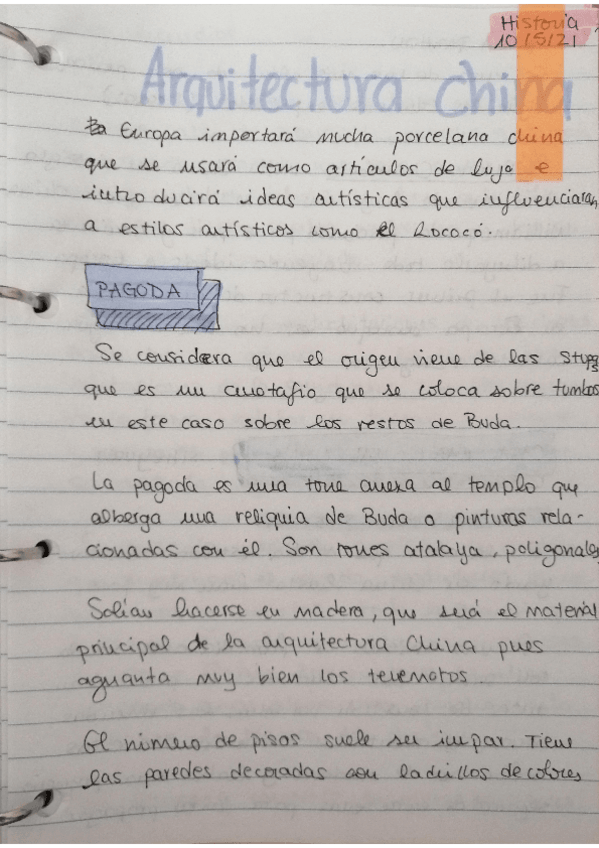 Historia
10/5/21
Arquitectura China
Europa importará mucha porcelana china
que se usará como artículos de lujo e
introducirá ideas artísticas que influenciaran
a estilos artísticos como el Rococó.
PAGODA
Se considera que el origen viene de las Stupas
que es un cenotafio que se coloca sobre tumbas
en este caso sobre los restos de Buda.
La pagoda es una torre anexa al templo que
alberga una reliquia de Buda o pinturas rela-
cionadas con él. Son torres atalaya, poligonales
Solían hacerse en madera, que será el material
principal de la arquitectura China pues
aguanta muy bien los terremotos
El número de pisos suele ser impar. Tiene
las paredes decoradas con ladrillos de colores